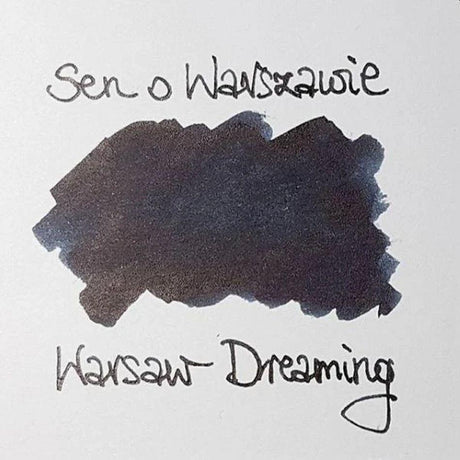 Sen o Warszawie
Warsaw Dreaming